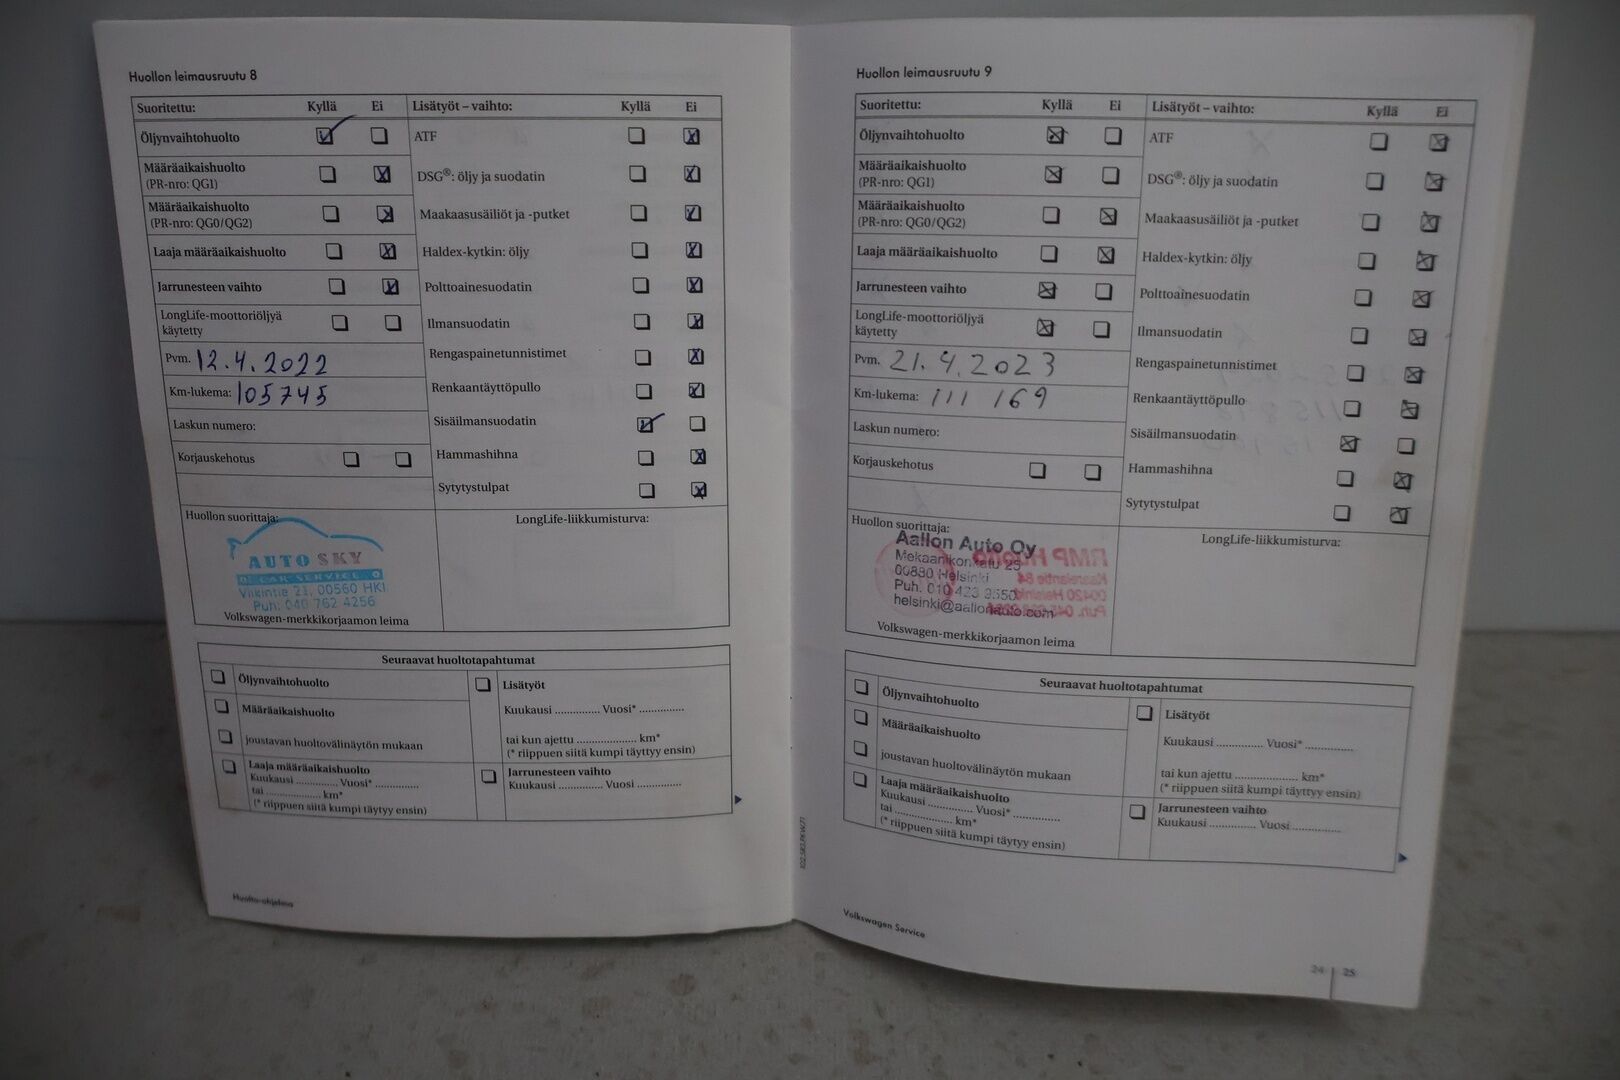 Huollon leimausruutu 8
Suoritettu: Kyllä Ei Lisätyöt – vaihto: Kyllä Ei
Öljynvaihtohuolto ATF
Määräaikaishuolto
(PR-nro: QG1) DSG®: öljy ja suodatin
Määräaikaishuolto
(PR-nro: QG0/QG2) Maakaasusäiliöt ja -putket
Laaja määräaikaishuolto Haldex-kytkin: öljy
Jarrunesteen vaihto Polttoainesuodatin
LongLife-moottoriöljyä
käytetty Ilmansuodatin
Pvm. 12.4.2022 Rengaspainetunnistimet
Km-lukema: 105745 Renkaantäyttöpullo
Laskun numero: Sisäilmansuodatin
Korjauskehotus Hammashihna
Sytytystulpat
Huollon suorittaja: LongLife-liikkumisturva:
AUTO SKY
CAR SERVICE
Viikintie 23, 00560 HKI
Puh: 040 762 4256
Volkswagen-merkkikorjaamon leima
Seuraavat huoltotapahtumat
Öljynvaihtohuolto Lisätyöt
Määräaikaishuolto Kuukausi ............... Vuosi* ...............
joustavan huoltovälinäytön mukaan tai kun ajettu .................... km*
(* riippuen siitä kumpi täyttyy ensin)
Laaja määräaikaishuolto Jarrunesteen vaihto
Kuukausi ............... Vuosi* ............... Kuukausi ............... Vuosi ...............
tai .................... km*
(* riippuen siitä kumpi täytyy ensin)
Huolto-ohjelma
Huollon leimausruutu 9
Suoritettu: Kyllä Ei Lisätyöt – vaihto: Kyllä Ei
Öljynvaihtohuolto ATF
Määräaikaishuolto
(PR-nro: QG1) DSG®: öljy ja suodatin
Määräaikaishuolto
(PR-nro: QG0/QG2) Maakaasusäiliöt ja -putket
Laaja määräaikaishuolto Haldex-kytkin: öljy
Jarrunesteen vaihto Polttoainesuodatin
LongLife-moottoriöljyä
käytetty Ilmansuodatin
Pvm. 21.4.2023 Rengaspainetunnistimet
Km-lukema: 111 169 Renkaantäyttöpullo
Laskun numero: Sisäilmansuodatin
Korjauskehotus Hammashihna
Sytytystulpat
Huollon suorittaja: LongLife-liikkumisturva:
Aallon Auto Oy
Mekaanikonkatu 25
00880 Helsinki
Puh. 010 423 3550
helsinki@aallonauto.com
RMP Huolto
00420 Helsinki
Volkswagen-merkkikorjaamon leima
Seuraavat huoltotapahtumat
Öljynvaihtohuolto Lisätyöt
Määräaikaishuolto Kuukausi ............... Vuosi* ...............
joustavan huoltovälinäytön mukaan tai kun ajettu .................... km*
(* riippuen siitä kumpi täyttyy ensin)
Laaja määräaikaishuolto Jarrunesteen vaihto
Kuukausi ............... Vuosi* ............... Kuukausi ............... Vuosi ...............
tai .................... km*
(* riippuen siitä kumpi täytyy ensin)
Volkswagen Service
24 | 25